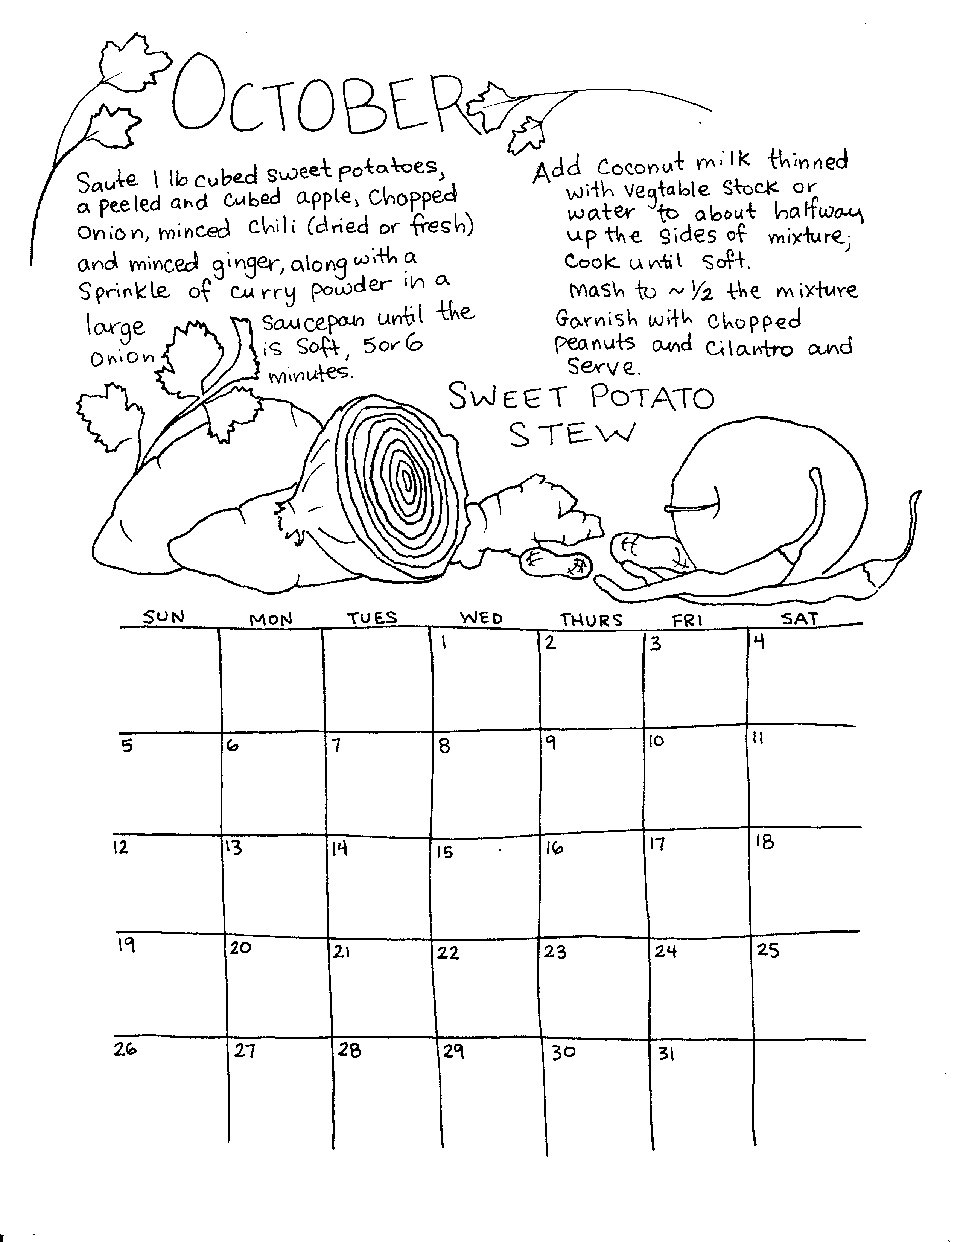 OCTOBER
Saute 1 lb cubed sweet potatoes,
a peeled and cubed apple, chopped
onion, minced chili (dried or fresh)
and minced ginger, along with a
sprinkle of curry powder in a
large saucepan until the
onion is soft, 5 or 6
minutes.
Add coconut milk thinned
with vegtable stock or
water to about halfway
up the sides of mixture;
cook until soft.
Mash to ~ 1/2 the mixture
Garnish with chopped
peanuts and cilantro and
serve.
SWEET POTATO
STEW
SUN MON TUES WED THURS FRI SAT
1 2 3 4
5 6 7 8 9 10 11
12 13 14 15 16 17 18
19 20 21 22 23 24 25
26 27 28 29 30 31